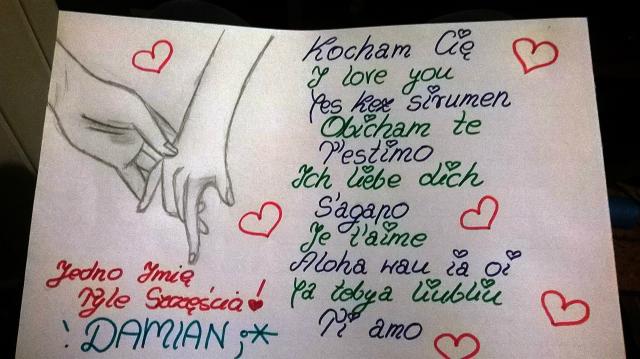 Kocham Cię
I love you
Yes kez sirumen
Obicham te
T'estimo
Ich liebe dich
S'agapo
Je t'aime
Aloha wau ia oi
Ya tebya liubliu
Ti amo
Jedno Imię
Tyle Szczęścia!
: DAMIAN ;*